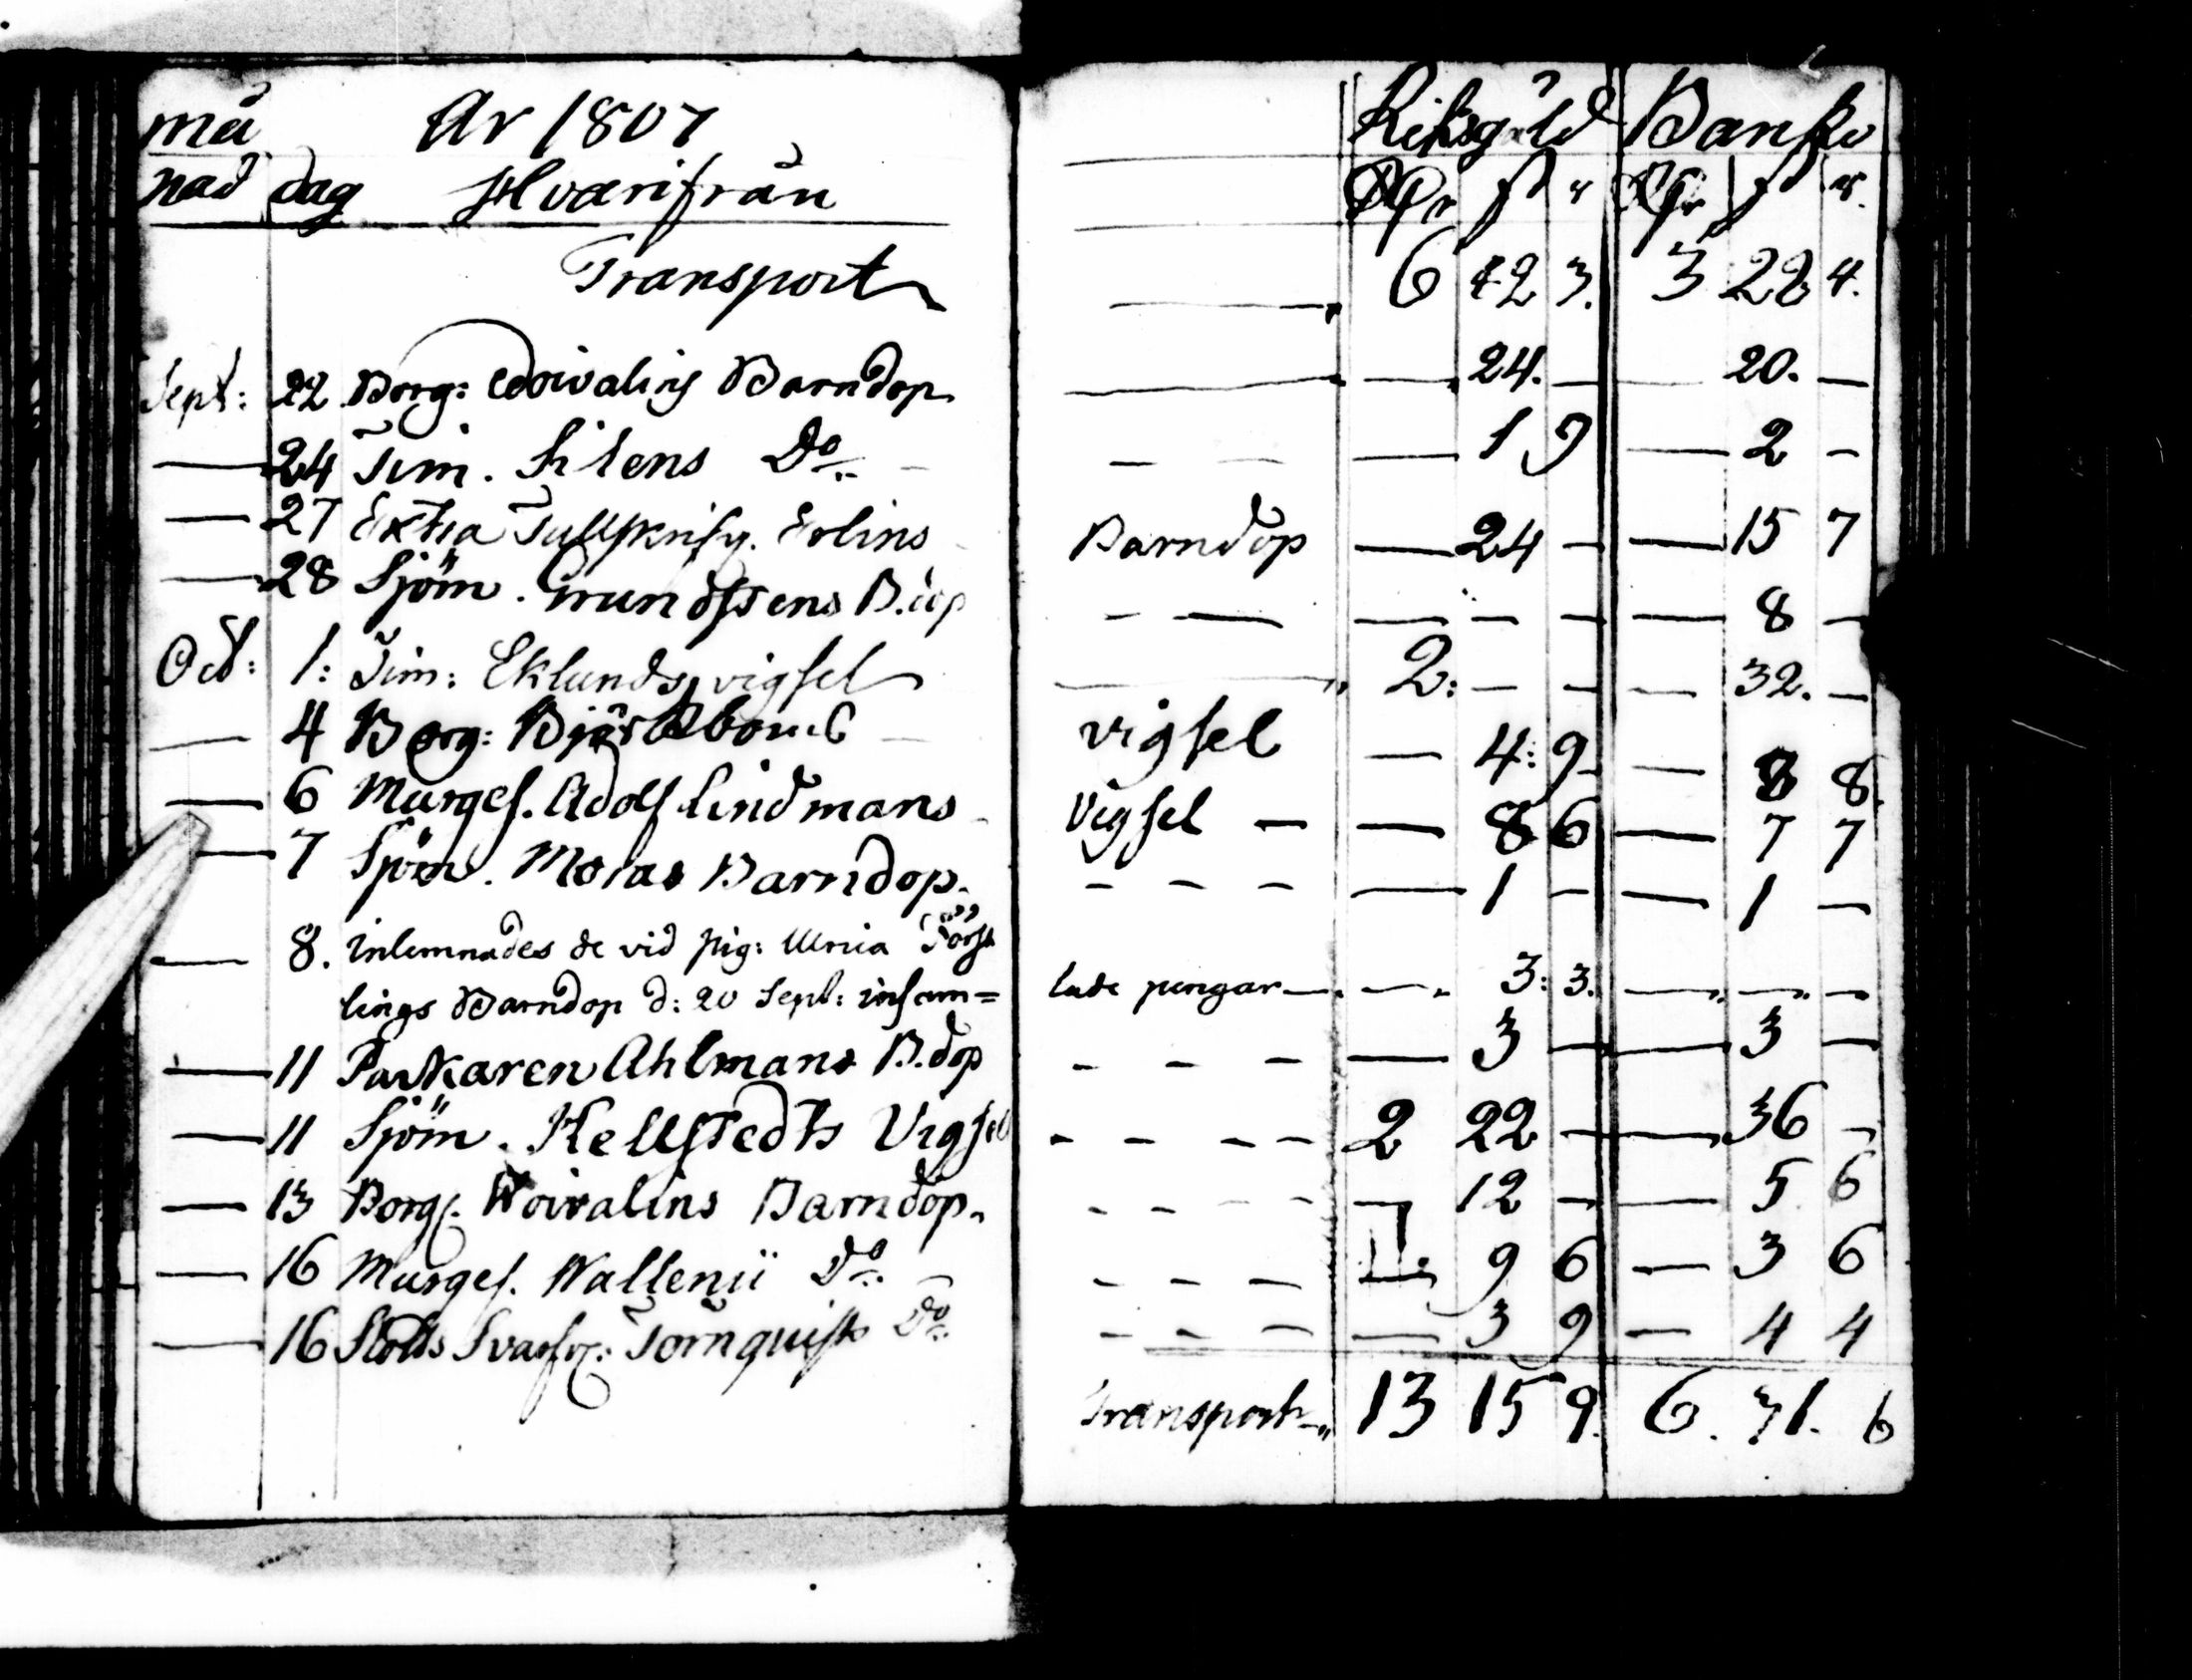 må År 1807 Riksgäld Banko
nad dag Hvarifrån Rdr ß r Rdr ß r.
Transport 6 42 3. 3 28 4.
Sept: 22 Borg: Woivalins Barndop — 24. — — 20. —
— 24 Tim. Silens Do — 1 9 — 2 —
— 27 Extra Tullskrifv. Erlins Barndop — 24 — — 15 7
— 28 Sjöm. Grundssens B.dop — — — — 8 —
Oct: 1: Tim: Eklunds vigsel 2: — — — 32. —
— 4 Borg: Björkboms vigsel — 4: 9 — 8 8.
— 6 Murges. Adolf Lindmans Vigsel — — 8 6 — 7 7
— 7 Sjöm. Moras Barndop. — 1 — — 1 —
— 8. inlemnades de vid pig: Ulrica Först
lings Barndop d: 20 Sept: insam= lade pengar — — 3: 3. — — —
— 11 Packaren Ahlmans B.dop — 3 — — 3 —
— 11 Sjöm. Kellstedts Vigsel 2 22 — — 36 —
— 13 Borg. Woivalins Barndop. — 12 — — 5 6
— 16 Murges. Wallenii Do — 9 6 — 3 6
— 16 Stolts Svarfv: Tornquists Do — 3 9 — 4 4
Transport 13 15 9. 6. 31. 6